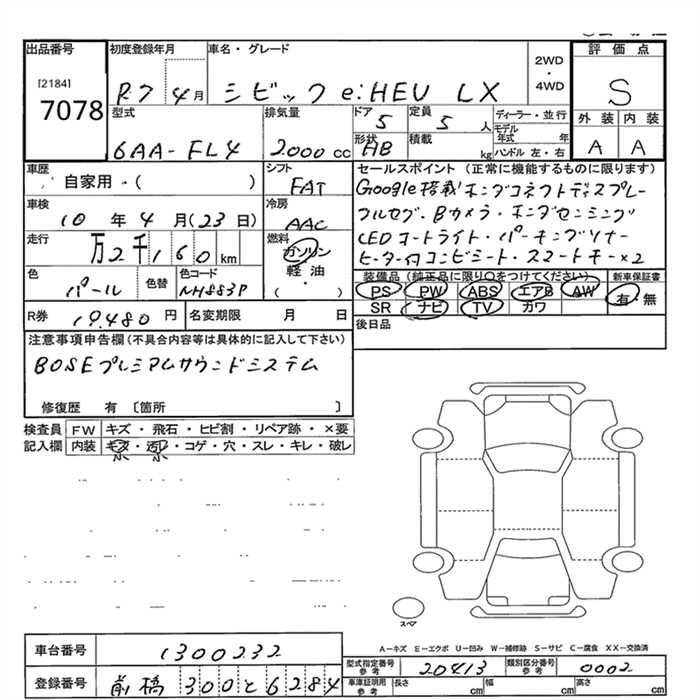 出品番号 初度登録年月 車名・グレード 2WD・4WD 評価点
[2184]
7078 R7 4月 シビック e:HEV LX S
型式 排気量 ドア 5 定員 5人 ディーラー・並行 外装 内装
6AA-FL4 2000cc 形状 HB 積載 kg モデル年式 年 ハンドル 左・右 A A
車歴 自家用・( ) シフト FAT
セールスポイント(正常に機能するものに限ります)
Google搭載ホンダコネクトディスプレー
フルセグ・Bカメラ・ホンダセンシング
LEDオートライト・パーキングソナー
ヒーター付コンビシート・スマートキー×2
車検 10年4月(23日) 冷房 AAC
走行 万2千160km 燃料 ガソリン 軽油・( )
色 パール 色替 色コード NH883P
装備品(純正品に限り○をつけてください) 新車保証書
PS PW ABS エアB AW 有・無
SR ナビ TV カワ
R券 19,480円 名変期限 月 日 後日品
注意事項申告欄(不具合内容等は具体的に記入して下さい)
BOSEプレミアムサウンドシステム
修復歴 有〔箇所 〕
検査員 FW キズ・飛石・ヒビ割・リペア跡・×要
記入欄 内装 キズ・汚れ・コゲ・穴・スレ・キレ・破レ
小 小
スペア
A-キズ E-エクボ U-凹み W-補修跡 S-サビ C-腐食 XX-交換済
車台番号 1300232
型式指定番号 参考 20413 類別区分番号 参考 0002
登録番号 前橋 300 と 6284
車庫証明用 参考 長さ cm 幅 cm 高さ cm